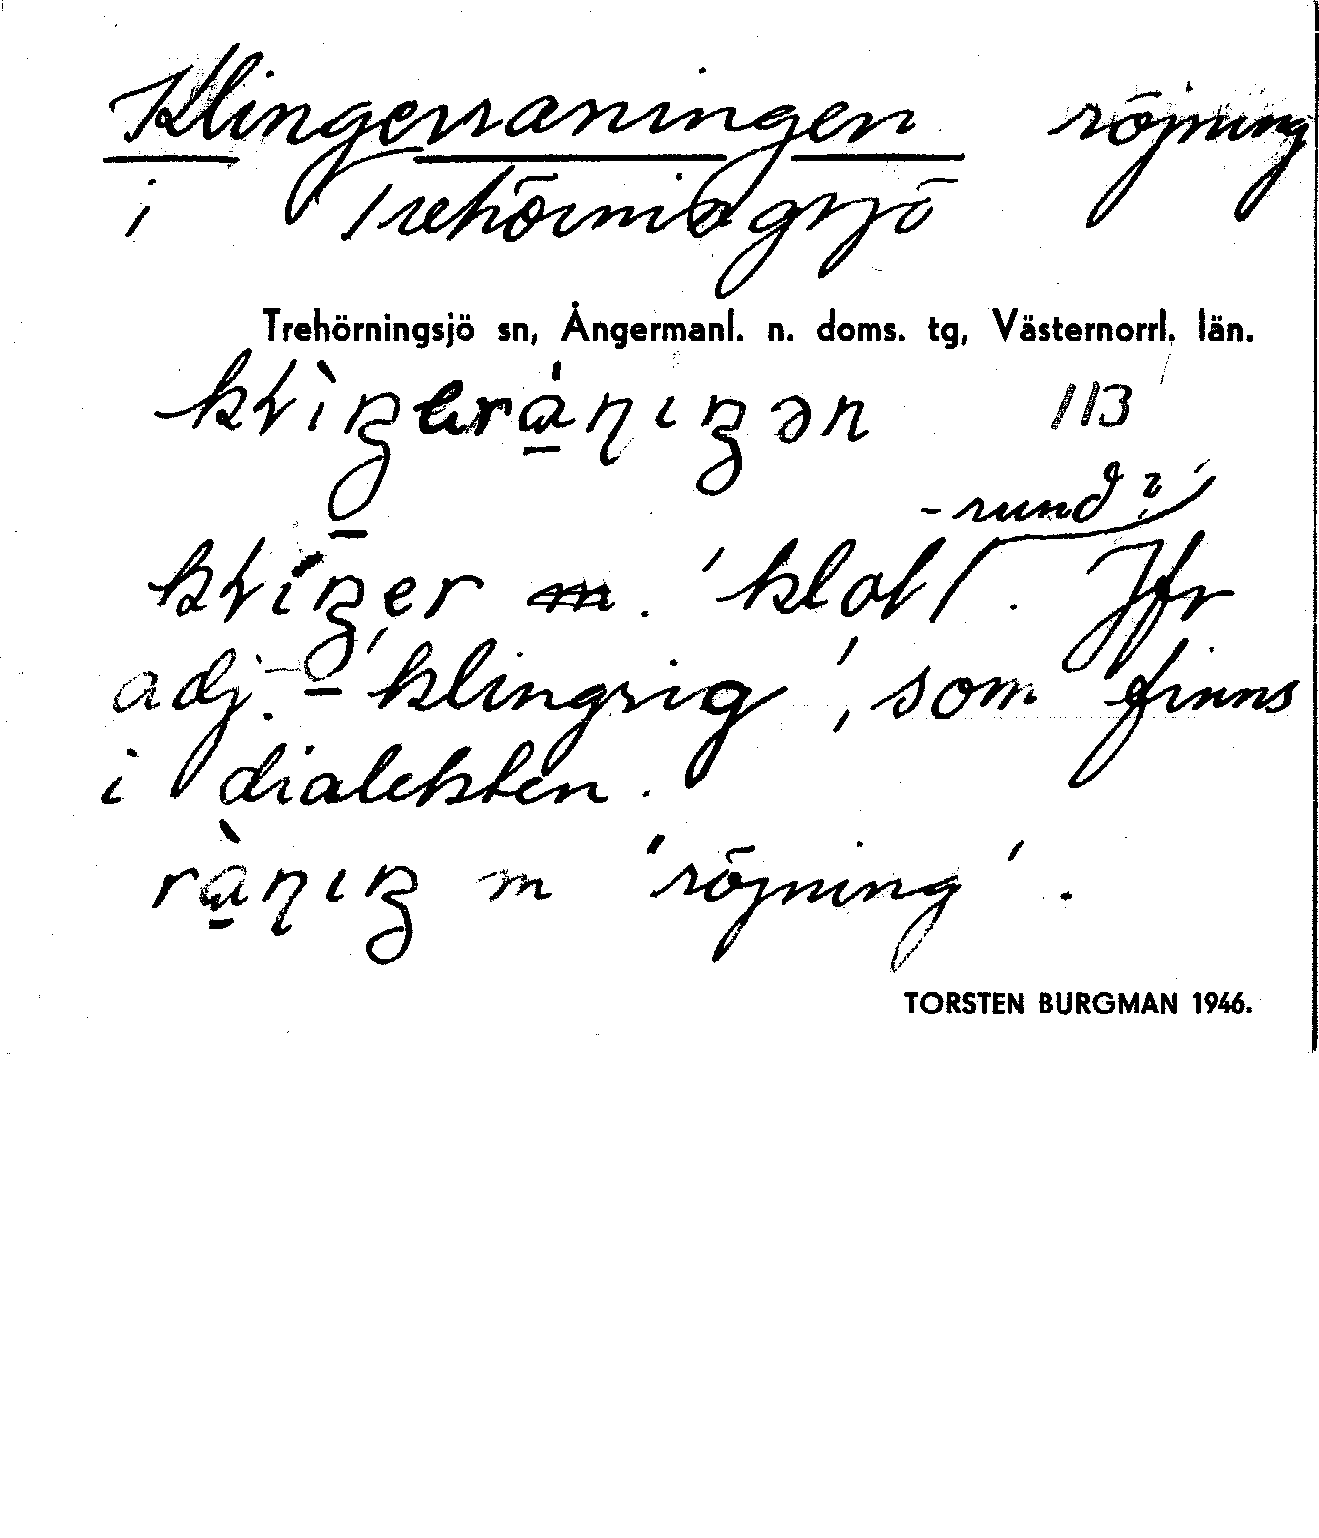 Klingerraningen röjning
i Trehörningsjö
Trehörningsjö sn, Ångermanl. n. doms. tg, Västernorrl. län.
113
-rund?
m. 'klot'. Jfr
adj. 'klingrig', som finns
i dialekten.
m 'röjning'.
TORSTEN BURGMAN 1946.